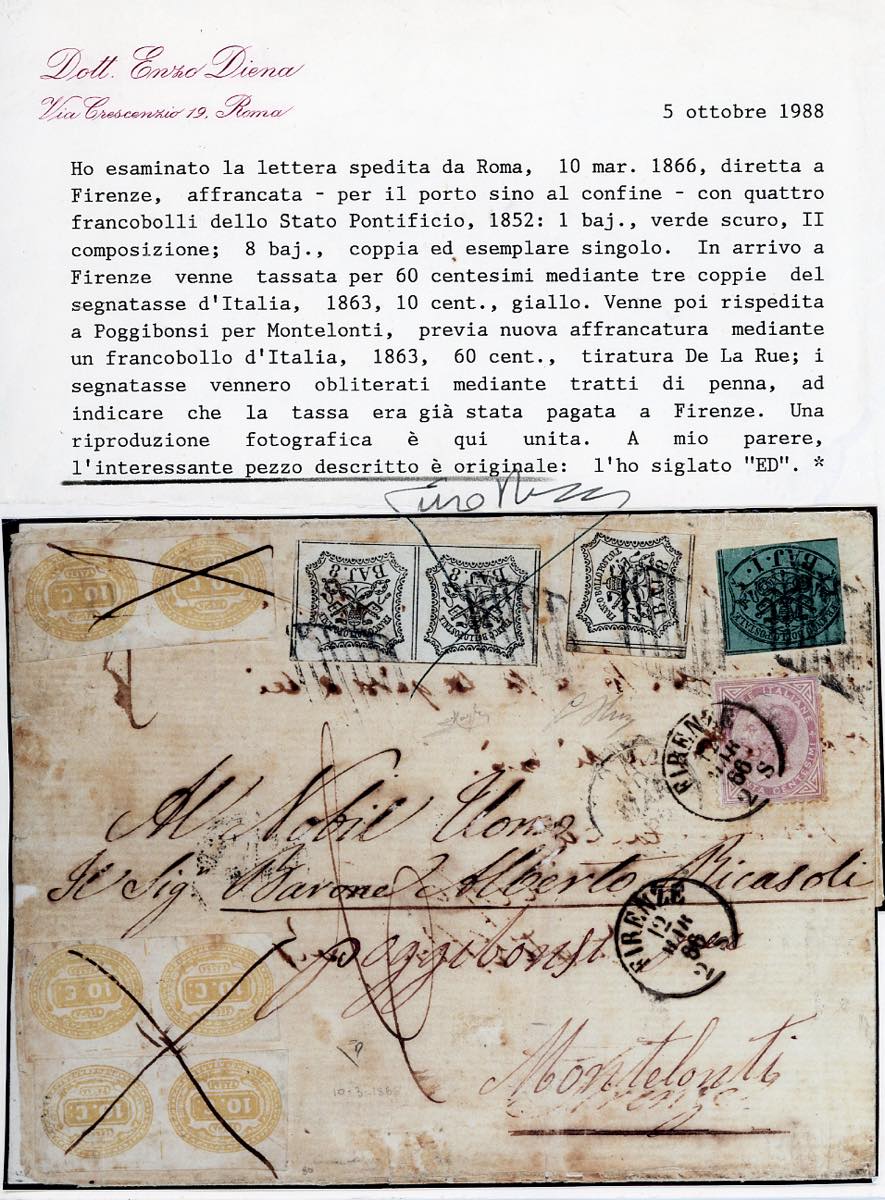 Dott. Enzo Diena
Via Crescenzio 19, Roma
5 ottobre 1988
Ho esaminato la lettera spedita da Roma, 10 mar. 1866, diretta a
Firenze, affrancata - per il porto sino al confine - con quattro
francobolli dello Stato Pontificio, 1852: 1 baj., verde scuro, II
composizione; 8 baj., coppia ed esemplare singolo. In arrivo a
Firenze venne tassata per 60 centesimi mediante tre coppie del
segnatasse d'Italia, 1863, 10 cent., giallo. Venne poi rispedita
a Poggibonsi per Montelonti, previa nuova affrancatura mediante
un francobollo d'Italia, 1863, 60 cent., tiratura De La Rue; i
segnatasse vennero obliterati mediante tratti di penna, ad
indicare che la tassa era già stata pagata a Firenze. Una
riproduzione fotografica è qui unita. A mio parere,
l'interessante pezzo descritto è originale: l'ho siglato "ED". *
10. C.
10. C.
BAJ. 8
BAJ. 8
BAJ. 8
FRANCO BOLLO POSTALE
BAJ. 1.
FRANCO BOLLO POSTALE
TE ITALIANE
TA CENTESIMI
FIRENZE
12
MAR
66
2 S
Al Nobil Uomo
Il Sig Barone Alberto Ricasoli
FIRENZE
12
MAR
66
2 S
Poggibonsi per
Montelonti
Firenze
10. C.
10. C.
10. C.
10. C.
10-3-1866